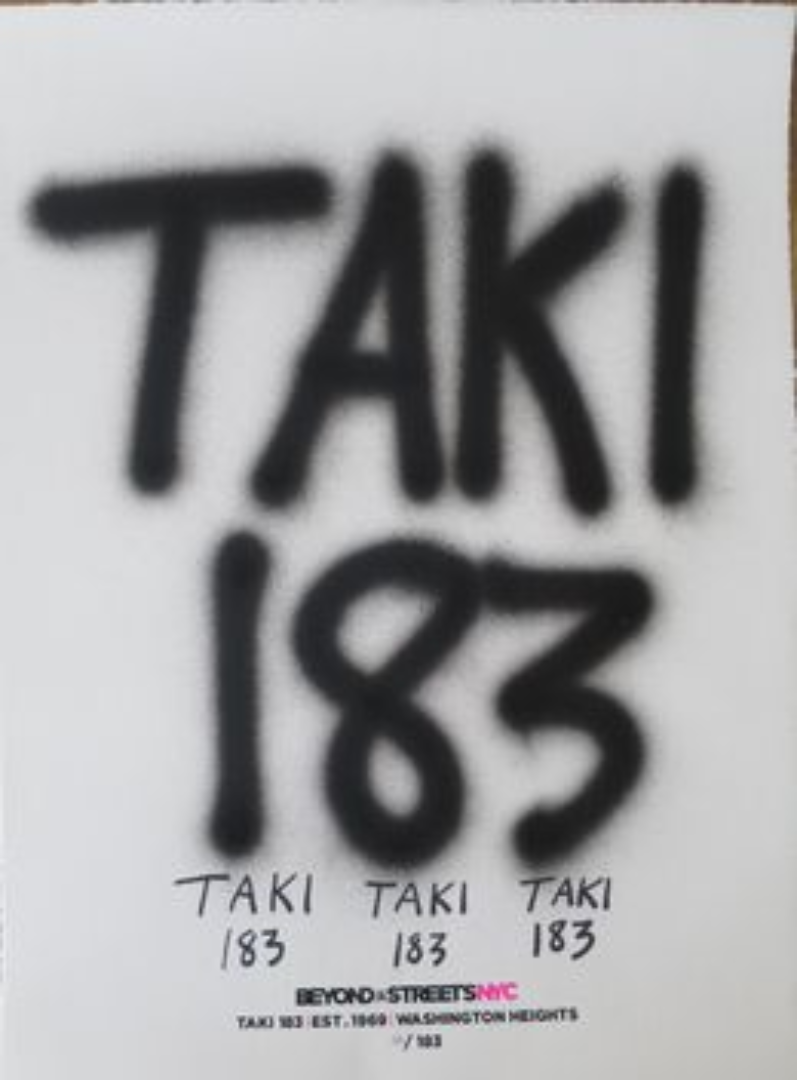 TAKI
183
TAKI TAKI TAKI
183 183 183
BEYOND THE STREETS NYC
TAKI 183 | EST. 1969 | WASHINGTON HEIGHTS
/ 183